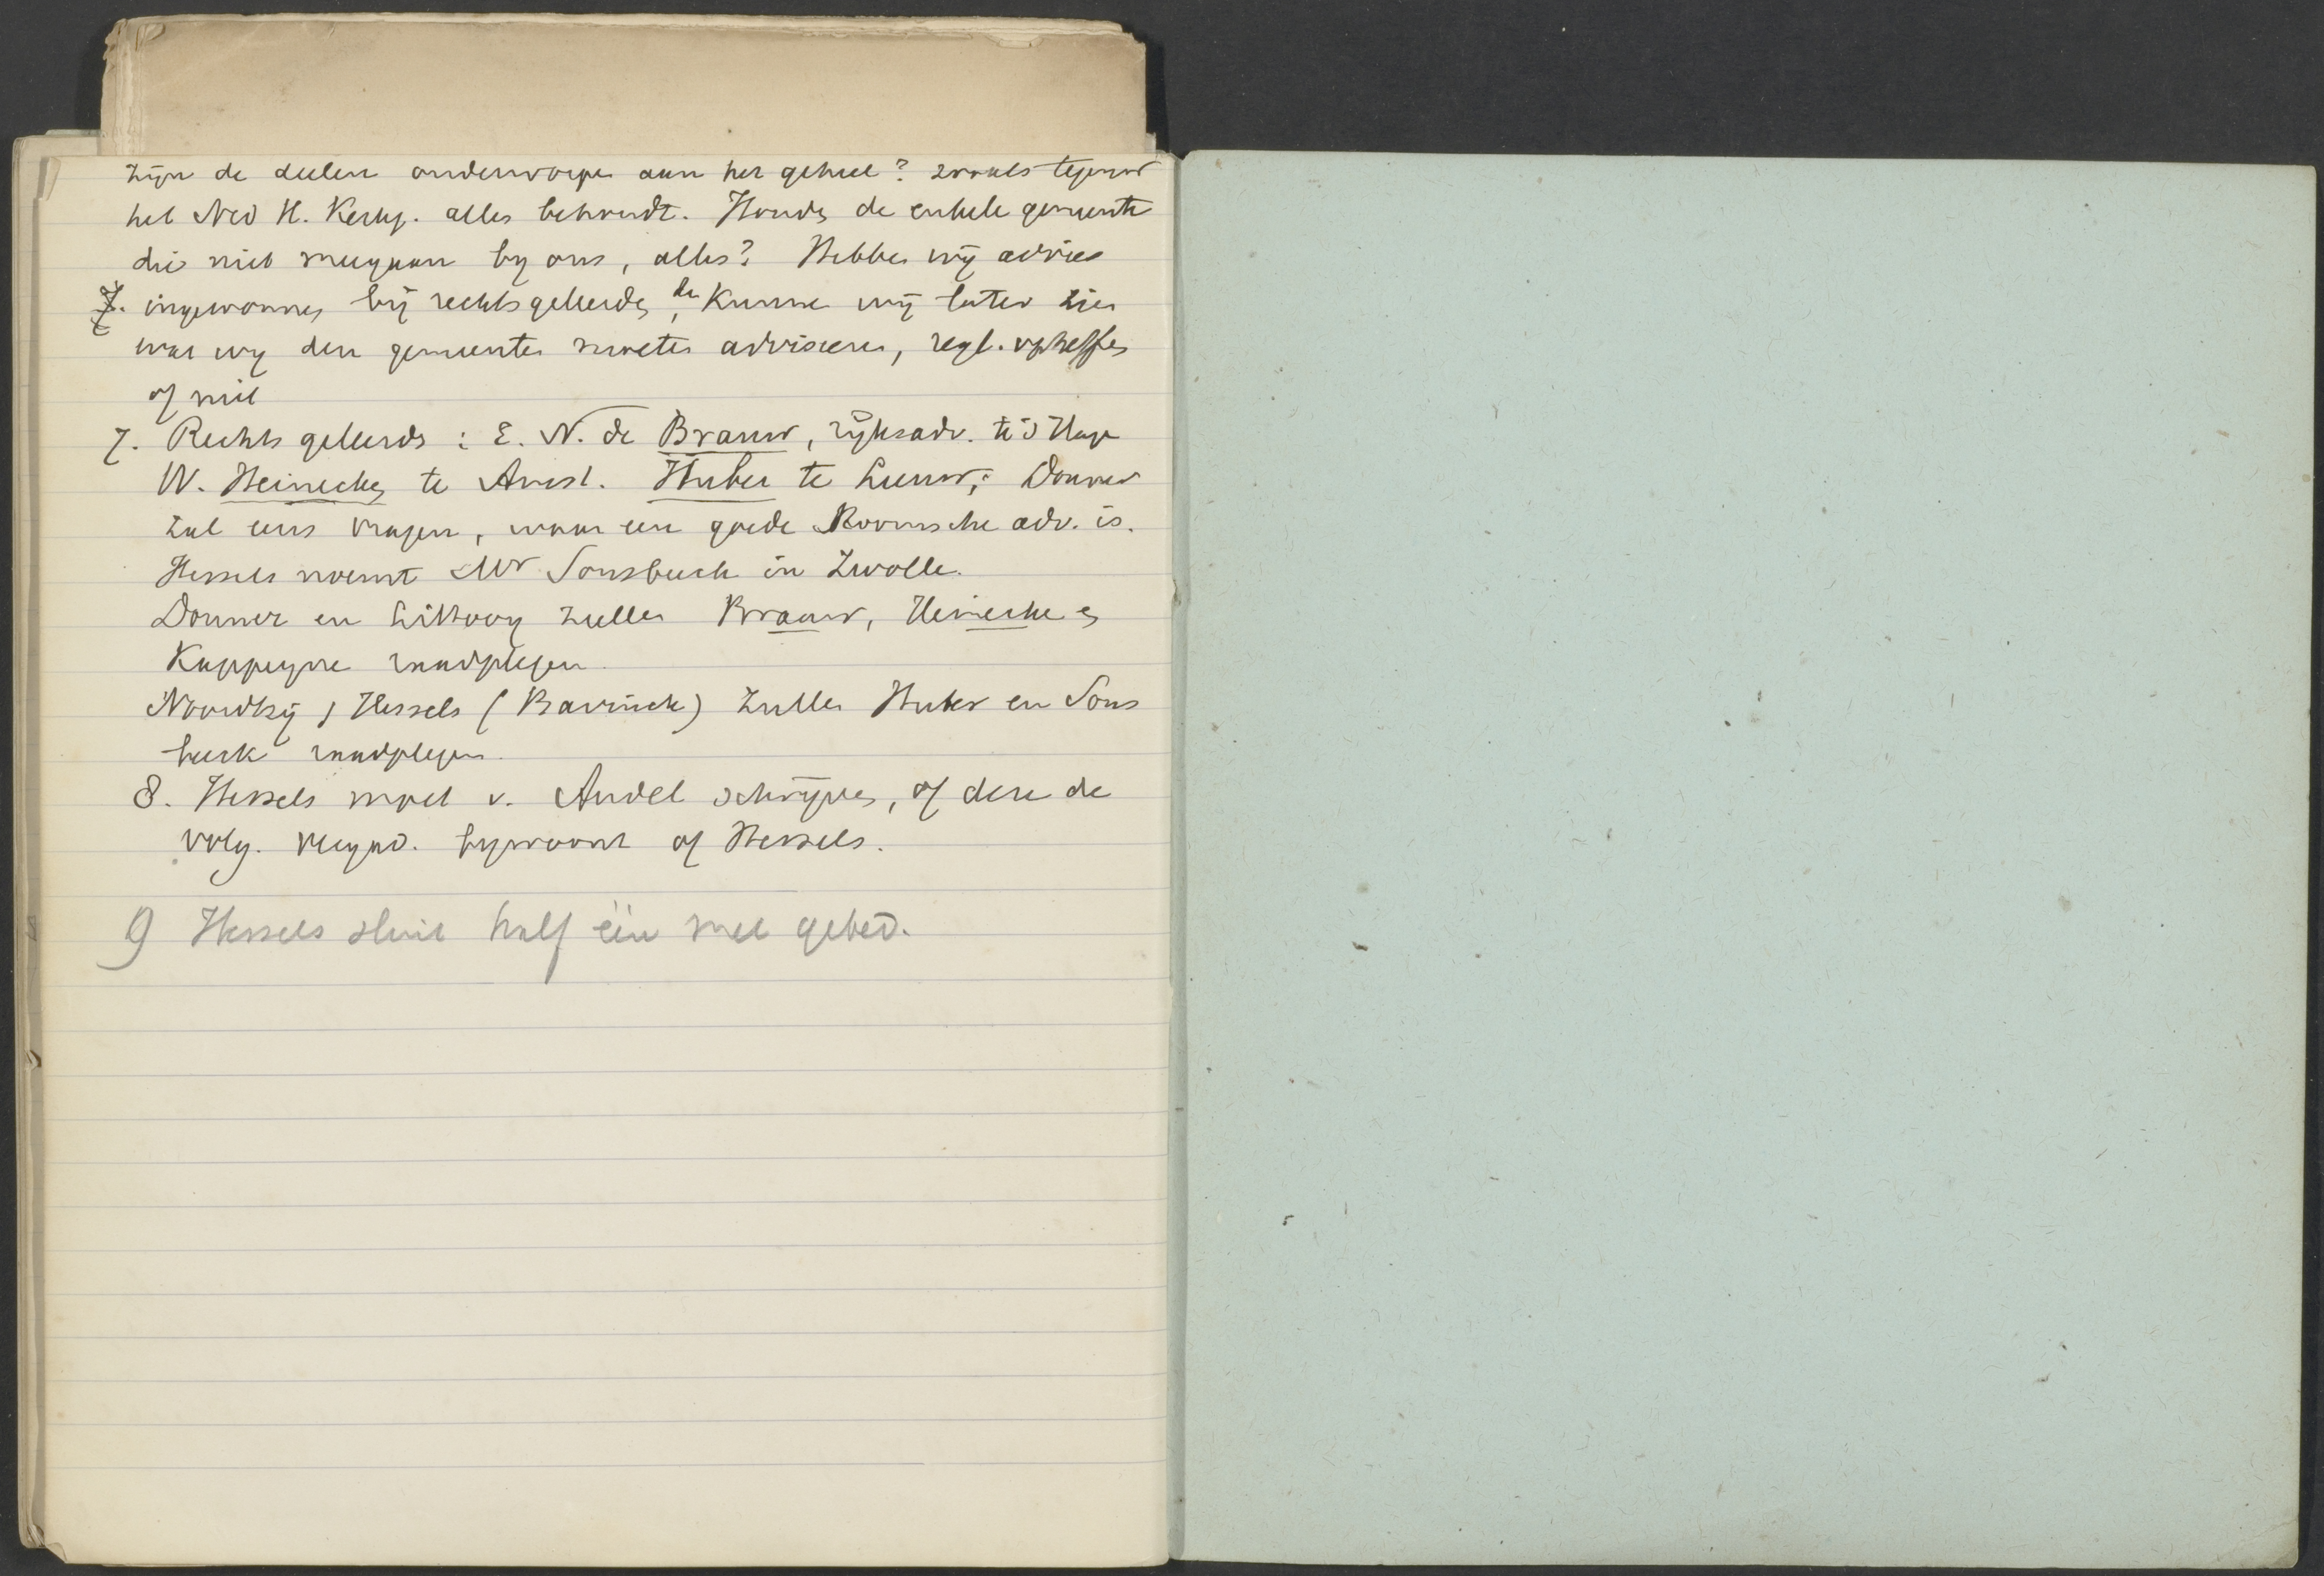 zijn de deelen onderworpen aan het geheel? zooals tegenw
het Ned H. Kerkg. alles behoudt. Houden de enkele gemeente
die niet meegaan by ons, alles? Hebben wij advies
7. ingewonnen bij rechtsgeleerden, dan kunnen wij later zien
wat wy den gemeenten moeten adviseren, regl. opheffen
of niet
7. Rechtsgeleerds : E. N. de Brauw, rijksadv. te 's Hage
W. Heinecken te Amst. Huber te Leeuw; Donner
zal eens vragen, waar een goede Roomsche adv. is.
Hessels noemt Mr Sonsbeeck in Zwolle.
Donner en Littooy zullen Brauw, Heinecke en
Kappeyne raadplegen
Noordtzij, Hessels (Bavinck) zullen Huber en Sons
beek raadplegen.
8. Hessels moet v. Andel schrijven, of deze de
volg. vergad. bywoont of Hessels.
9 Hessels sluit half één met gebed.